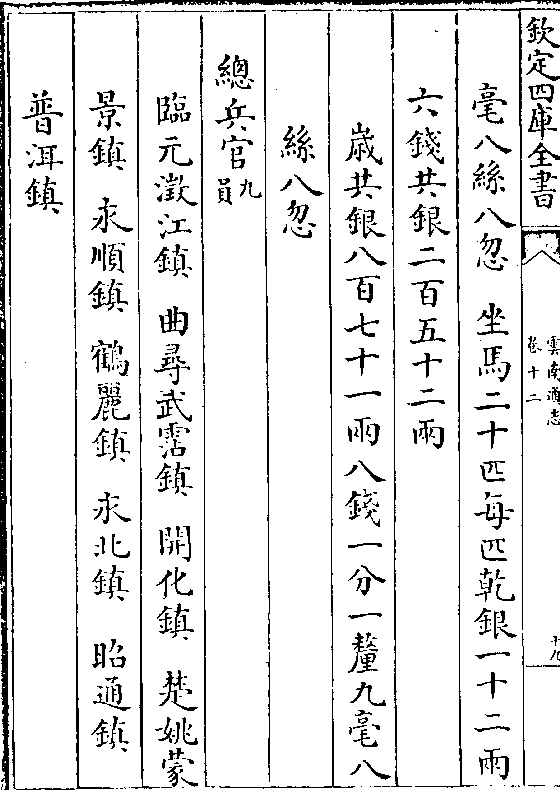 欽定四庫全書
雲南通志
卷十二
十九
毫八絲八忽　坐馬二十匹每匹乾銀一十二兩
六錢共銀二百五十二兩
歲共銀八百七十一兩八錢一分一釐九毫八
絲八忽
總兵官九員
臨元澂江鎮　曲尋武霑鎮　開化鎮　楚姚蒙
景鎮　永順鎮　鶴麗鎮　永北鎮　昭通鎮
普洱鎮